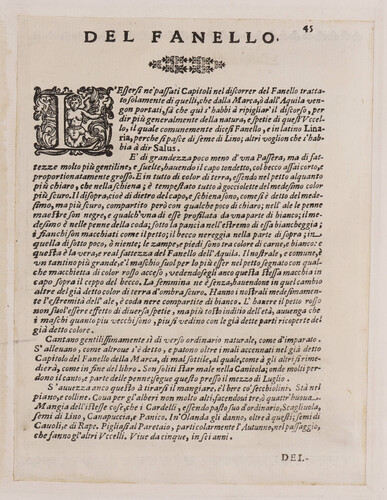 45
DEL FANELLO.
L'Essersi ne' passati Capitoli nel discorrer del Fanello tratta-
to solamente di quelli, che dalla Marca, ò dall'Aquila ven-
gon portati, fà che quì s'habbi à ripigliar'il discorso, per
dir più generalmente della natura, e spetie di quest'Vccel-
lo, il quale comunemente dicesi Fanello, e in latino Lina-
ria, perche si pasce di seme di Lino; altri voglion che s'hab-
bi à dir Salus.
E' di grandezza poco meno d'vna Passera, ma di fat-
tezze molto più gentiline, e suelte, hauendo il capo tondetto, col becco assai corto, e
proportionatamente grosso. E in tutto di color di terra, essendo nel petto alquanto
più chiaro, che nella schiena; è tempestato tutto à gocciolette del medesimo color
più scuro. Il disopra, cioè di dietro del capo, e schiena sono, come si è detto del mede-
simo, ma più scuro, compartito però con qualche poco di chiaro; nell'ale le penne
maestre son negre, e qualch'vna di esse profilata da vna parte di bianco; il me-
desimo è nelle penne della coda; sotto la pancia nell'estremo di essa biancheggia,
i fianchi son macchiati come il petto; il becco nereggia nella parte di sopra, in
quella di sotto poco, ò niente; le zampe, e piedi sono tra colore di carne, e bianco: e
questa è la vera, e real fattezza del Fanello dell'Aquila. Il nostrale, e comune, è
vn tantino più grande, e'l maschio suol per lo più esser nel petto segnato con qual-
che macchietta di color rosso acceso, vedendosegli anco questa stessa macchia in
capo sopra il ceppo del becco. La femmina ne è senza, hauendo in quel cambio
altre del già detto color di terra d'ombra scuro. Hanno i nostrali medesimamen-
te l'estremità dell'ale, e coda nere compartite di bianco. L'hauere il petto rosso
non suol'essere effetto di diuersa spetie, ma più tosto inditio dell'età, auuenga che
i maschi quanto piu vecchi sono, piu si vedino con le già dette parti ricoperte del
già detto colore.
Cantano gentilissimamente sì di verso ordinario naturale, come d'imparato.
S'alleuano, come altroue s'è detto, e patono oltre i mali accennati nel già detto
Capitolo del Fanello della Marca, di mal sottile, al quale, come à gli altri si rime-
dierà, come in fine del libro. Son soliti star male nella Canicola; onde molti per-
dono il canto, e parte delle penne; segue questo presso il mezzo di Luglio.
S'auuezza anco questo à tirarsi il mangiare, e'l bere co' secchiolini. Stà nel
piano, e colline. Coua per gl'alberi non molto alti, facendoui tre, ò quattr'huoua.
Mangia dell'istesse cose, che i Cardelli, essendo pasto suo d'ordinario, Scagliuola,
semi di Lino, Canapuccia, e Panico. In'Olanda gli danno, oltre à questi, semi di
Cauoli, e di Rape. Pigliasi al Paretaio, particolarmente l'Autunno, nel passaggio,
che fanno gl'altri Vccelli. Viue da cinque, in sei anni.
DEL-